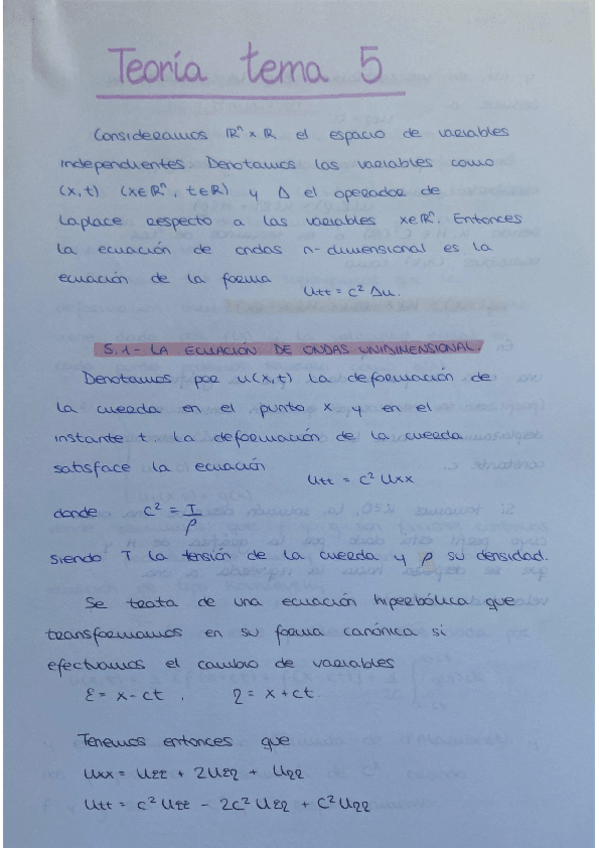 Teoría tema 5
Consideramos ℝⁿ × ℝ el espacio de variables
independientes. Denotamos las variables como
(x,t) (x∈ℝⁿ, t∈ℝ) y Δ el operador de
Laplace respecto a las variables x∈ℝⁿ. Entonces
la ecuación de ondas n-dimensional es la
ecuación de la forma
Utt = c² Δu.
5.1- LA ECUACIÓN DE ONDAS UNIDIMENSIONAL.
Denotamos por u(x,t) la deformación de
la cuerda en el punto x y en el
instante t. La deformación de la cuerda
satisface la ecuación
Utt = c² Uxx
donde c² = T/ρ
siendo T la tensión de la cuerda y ρ su densidad.
Se trata de una ecuación hiperbólica que
transformamos en su forma canónica si
efectuamos el cambio de variables
ξ = x - ct , η = x + ct.
Tenemos entonces que
Uxx = Uξξ + 2Uξη + Uηη
Utt = c² Uξξ - 2c² Uξη + c² Uηη